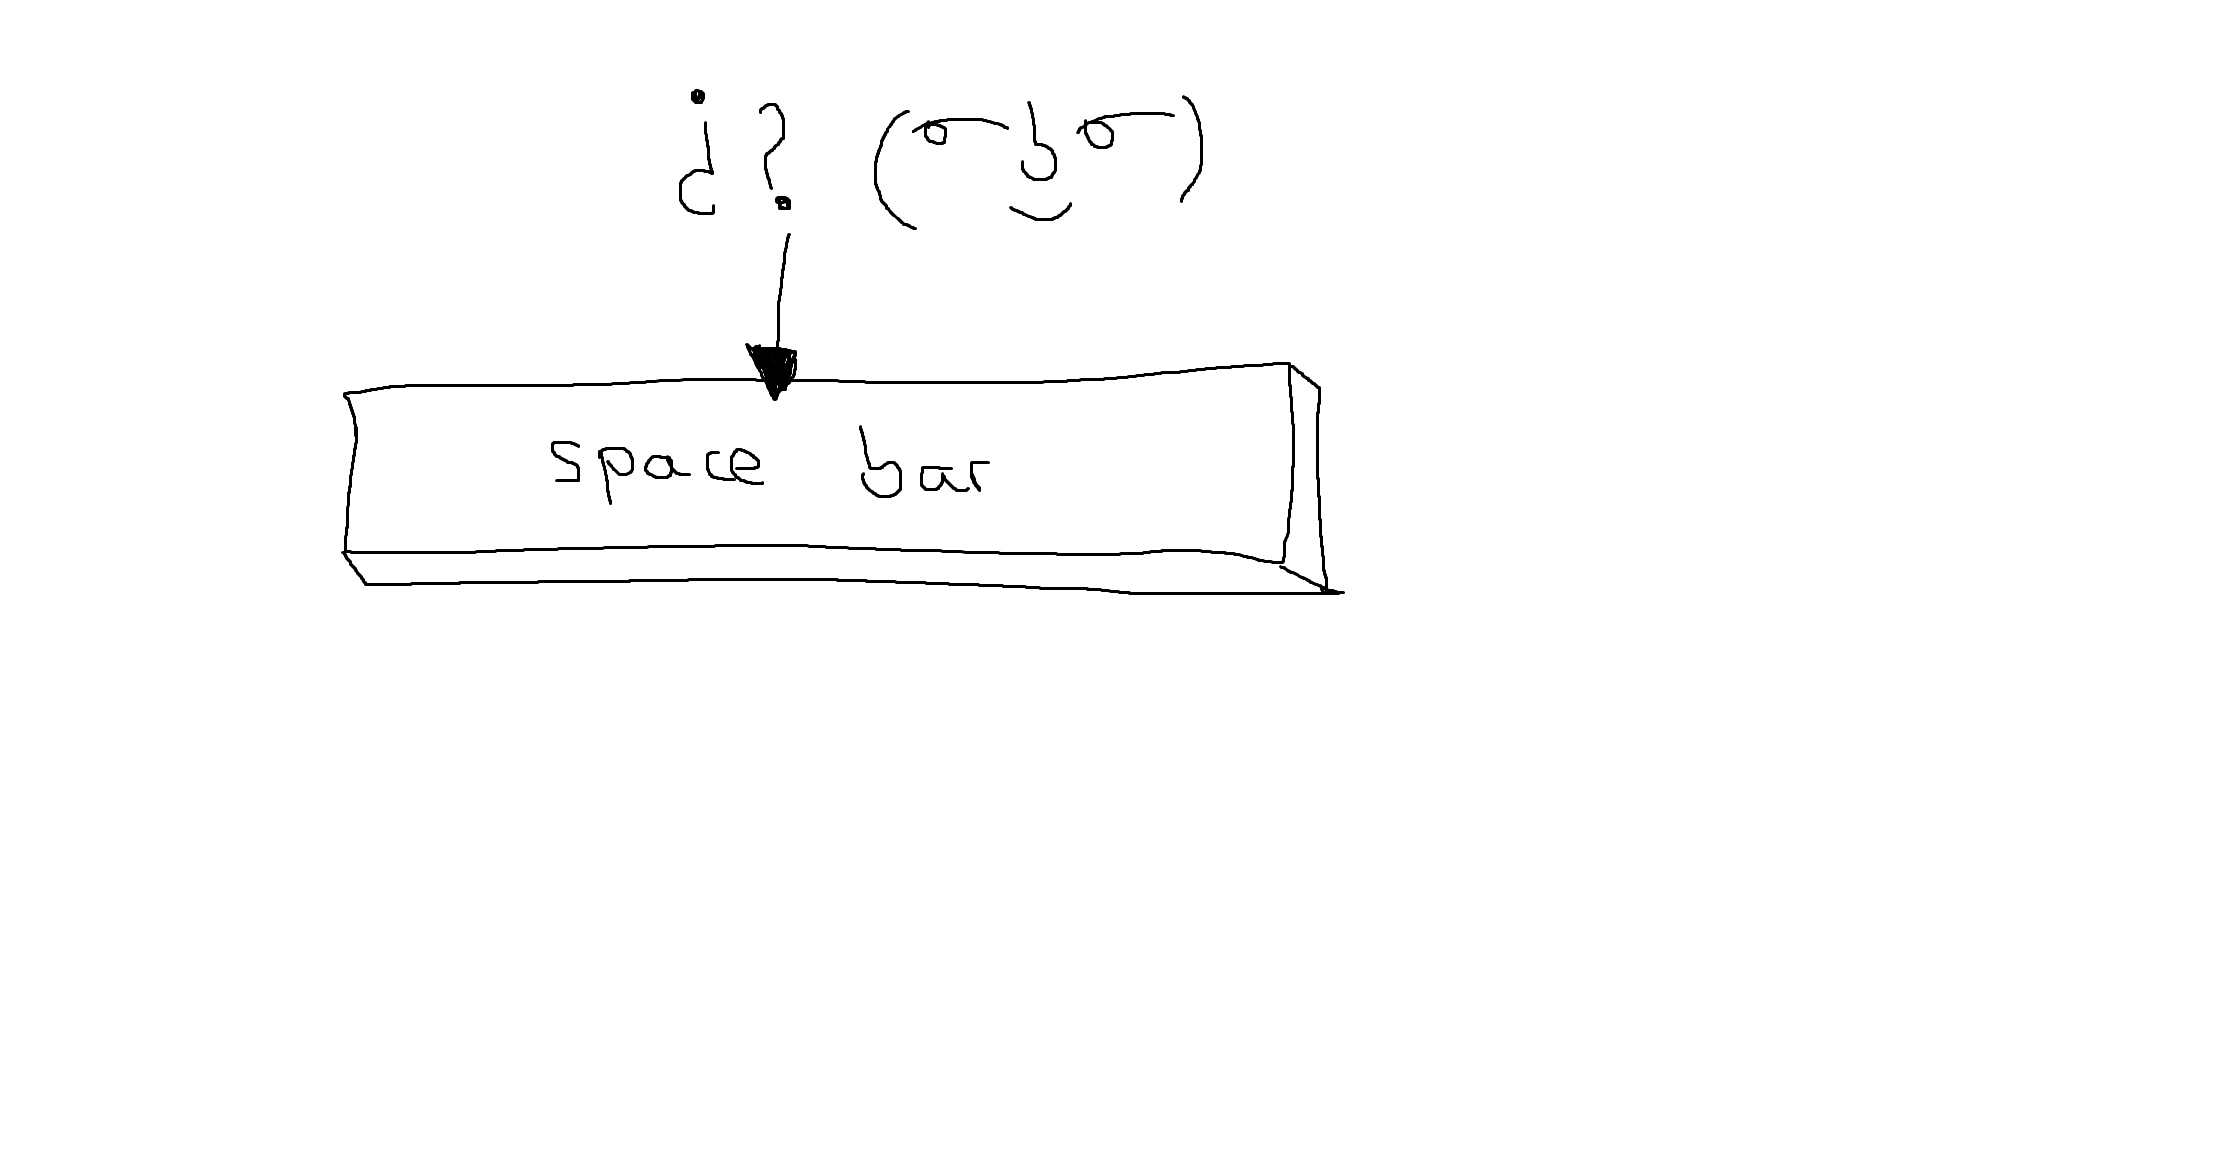 ¿? ( ͡° ͜ʖ ͡°)
space bar